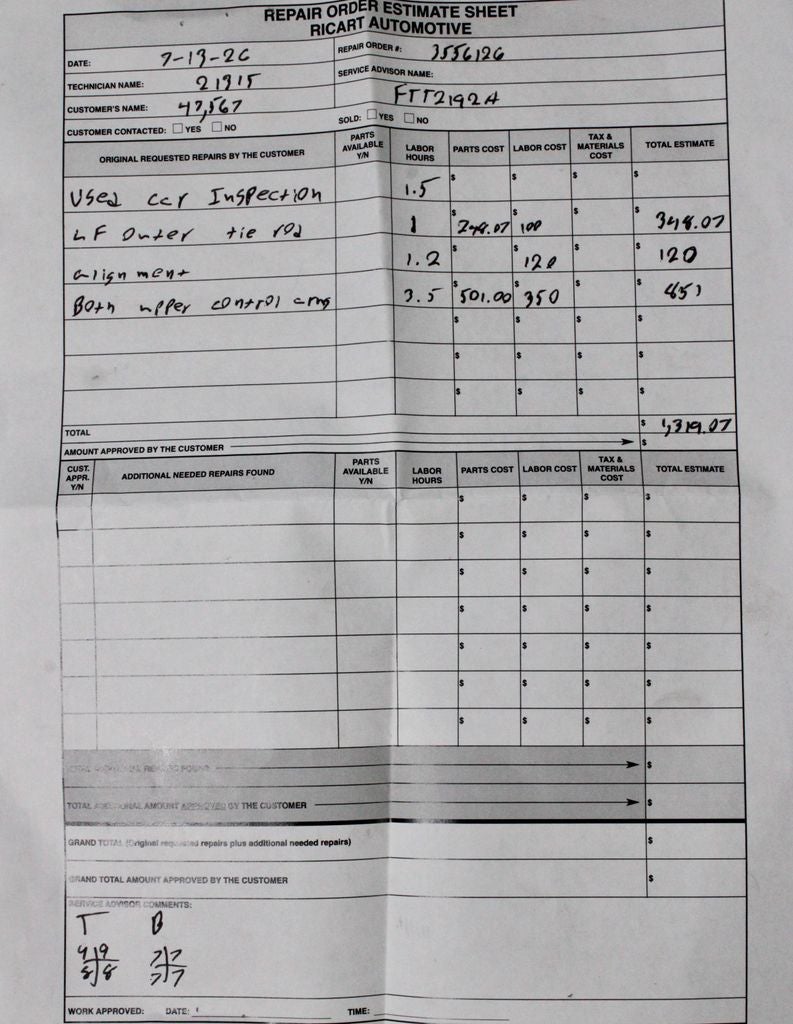 REPAIR ORDER ESTIMATE SHEET
RICART AUTOMOTIVE
DATE: 7-13-26 REPAIR ORDER #: 3556126
TECHNICIAN NAME: 21315 SERVICE ADVISOR NAME:
CUSTOMER'S NAME: 47,567 FTT2192A
CUSTOMER CONTACTED: YES NO SOLD: YES NO
ORIGINAL REQUESTED REPAIRS BY THE CUSTOMER PARTS AVAILABLE Y/N LABOR HOURS PARTS COST LABOR COST TAX & MATERIALS COST TOTAL ESTIMATE
Used car Inspection 1.5 $ $ $ $
LF Outer tie rod 1 $ 248.07 $ 100 $ $ 348.07
alignment 1.2 $ $ 120 $ $ 120
Both upper control arms 3.5 $ 501.00 $ 350 $ $ 851
$ $ $ $
$ $ $ $
$ $ $ $
TOTAL $ 1,319.07
AMOUNT APPROVED BY THE CUSTOMER $
CUST. APPR. Y/N ADDITIONAL NEEDED REPAIRS FOUND PARTS AVAILABLE Y/N LABOR HOURS PARTS COST LABOR COST TAX & MATERIALS COST TOTAL ESTIMATE
$ $ $ $
$ $ $ $
$ $ $ $
$ $ $ $
$ $ $ $
$ $ $ $
$ $ $ $
TOTAL ADDITIONAL REPAIRS FOUND $
TOTAL ADDITIONAL AMOUNT APPROVED BY THE CUSTOMER $
GRAND TOTAL (Original requested repairs plus additional needed repairs) $
GRAND TOTAL AMOUNT APPROVED BY THE CUSTOMER $
SERVICE ADVISOR COMMENTS:
T B
9 9 7 7
8 8 7 7
WORK APPROVED: DATE: TIME: